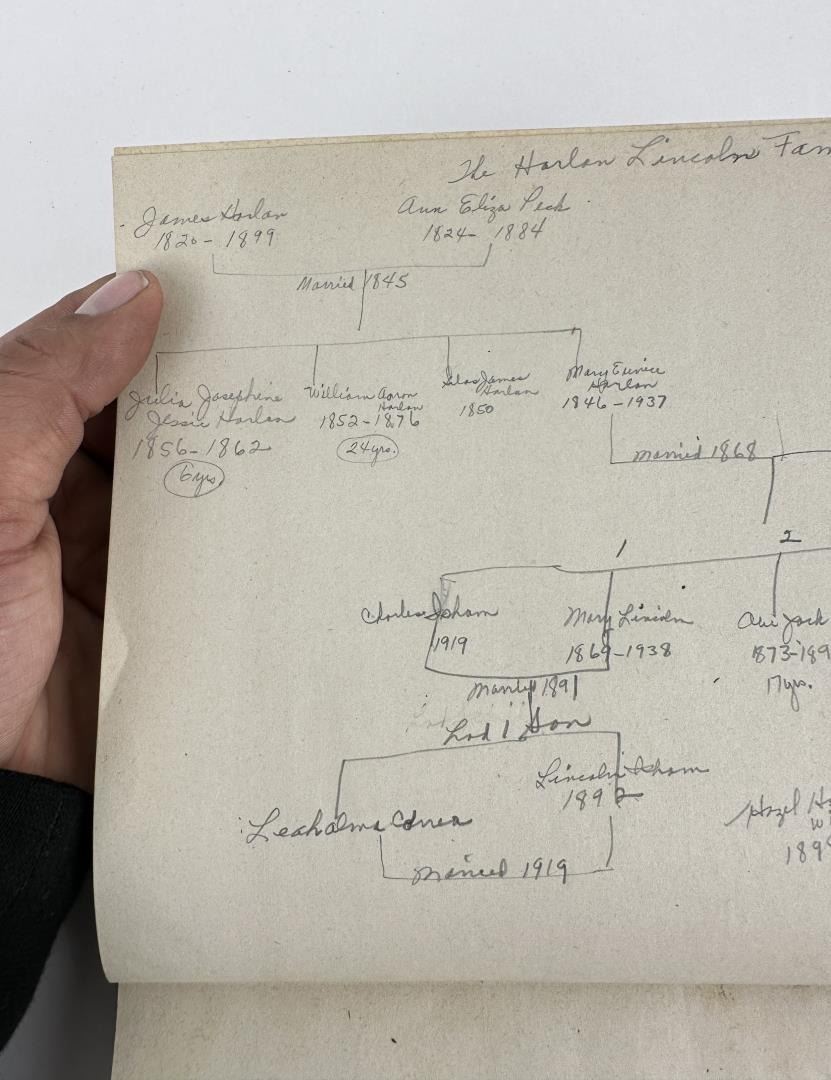 The Harlan Lincoln Fam
James Harlan
1820 - 1899
Ann Eliza Peck
1824 - 1884
Married 1845
Julia Josephine
Jessie Harlan
1856 - 1862
6 yrs.
William Aaron
Harlan
1852 - 1876
24 yrs.
Silas James
Harlan
1850
Mary Eunice
Harlan
1846 - 1937
Married 1868
1
2
Charles Isham
1919
Mary Lincoln
1869 - 1938
Married 1891
Jack
1873-189
17 yrs.
had 1 Son
Lincoln Isham
1892
Married 1919
Hazel
189